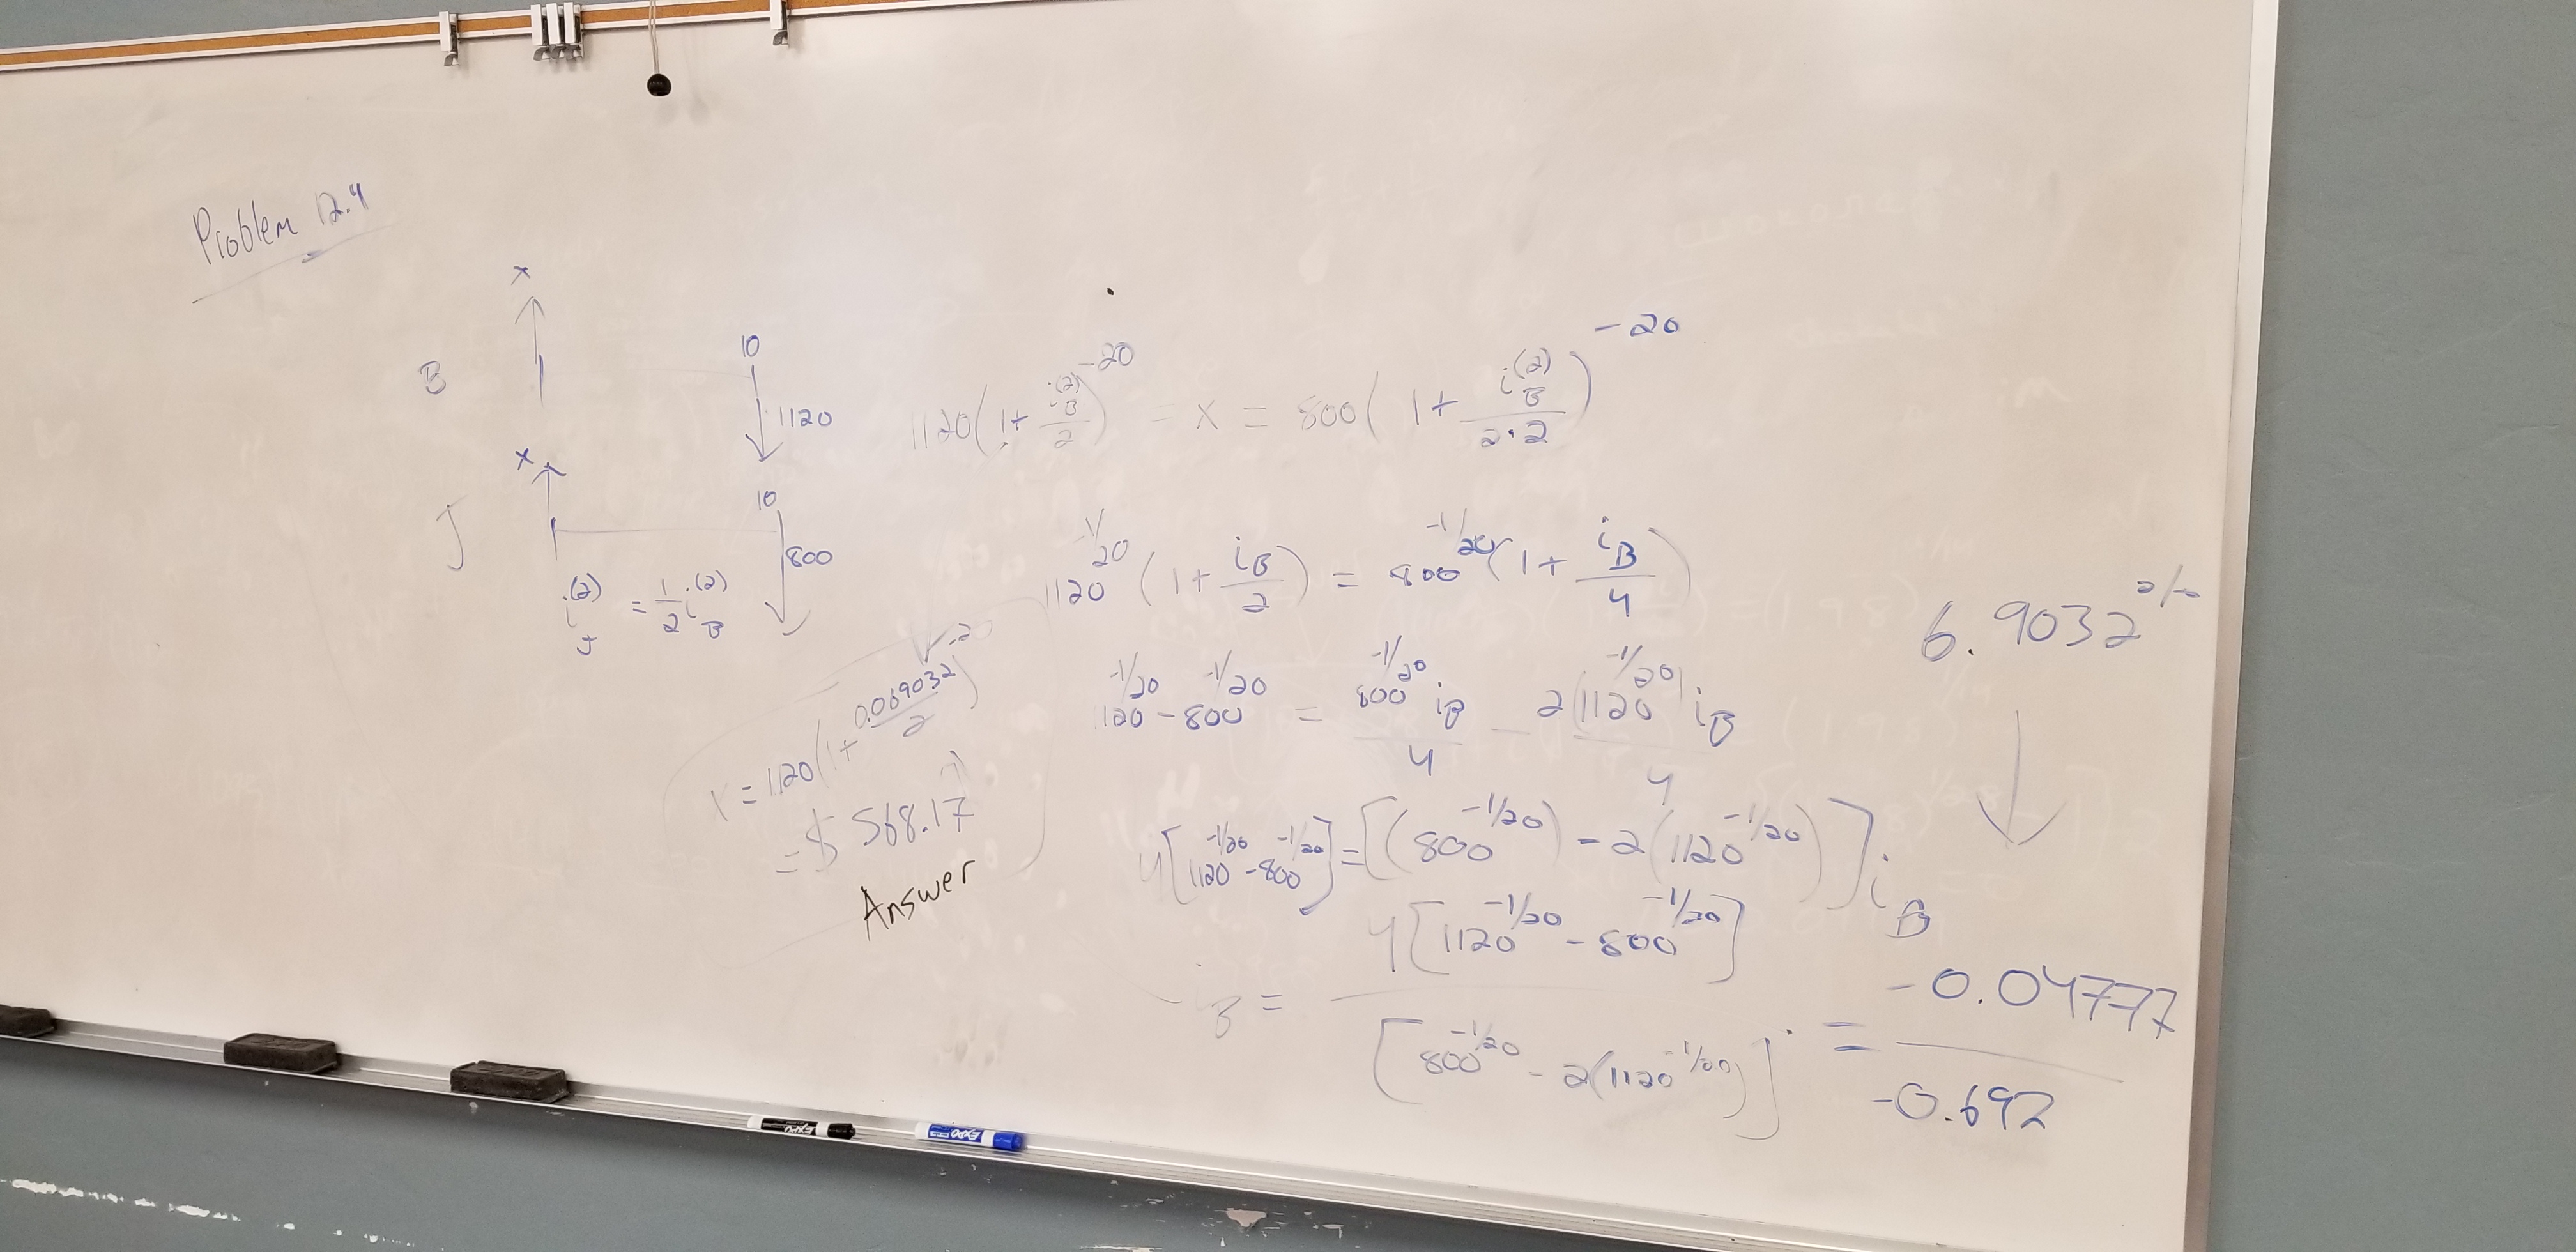 Problem 12.4
x
B
10
1120
x
J
10
800
i_J^(2) = 1/2 i_B^(2)
1120(1 + i_B^(2)/2)^-20 = x = 800(1 + i_B^(2)/(2·2))^-20
1120^-1/20 (1 + i_B/2) = 800^-1/20 (1 + i_B/4)
1120^-1/20 - 800^-1/20 = 800^-1/20 i_B/4 - 2(1120^-1/20) i_B/4
4[1120^-1/20 - 800^-1/20] = [(800^-1/20) - 2(1120^-1/20)] i_B
i_B = 4[1120^-1/20 - 800^-1/20]/[800^-1/20 - 2(1120^-1/20)] = -0.04777/-0.692
6.9032%
x = 1120(1 + 0.069032/2)^-20
= $ 568.17
Answer
EXPO
EXPO